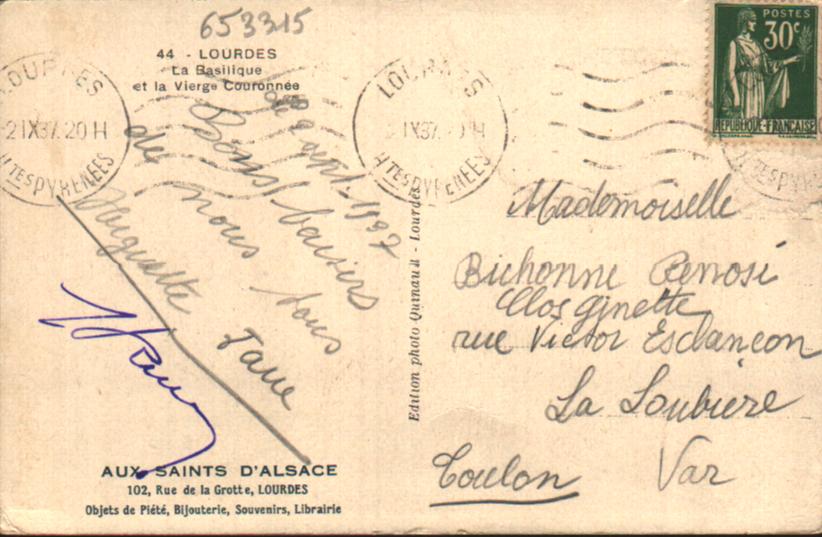 653315
44 - LOURDES
La Basilique
et la Vierge Couronnée
LOURDES
2 IX 37. 20 H
HTES PYRENEES
LOURDES
IX 37. 20 H
HTES PYRENEES
POSTES
30c
REPUBLIQUE-FRANÇAISE
le 2 sept. 1937
Bons baisers
de nous tous
Huguette Jane
AUX SAINTS D'ALSACE
102, Rue de la Grotte, LOURDES
Objets de Piété, Bijouterie, Souvenirs, Librairie
Edition photo Quinault - Lourdes
Mademoiselle
Bichonne Renosi
Clos ginette
rue Victor Esclançon
La Loubière
Toulon Var